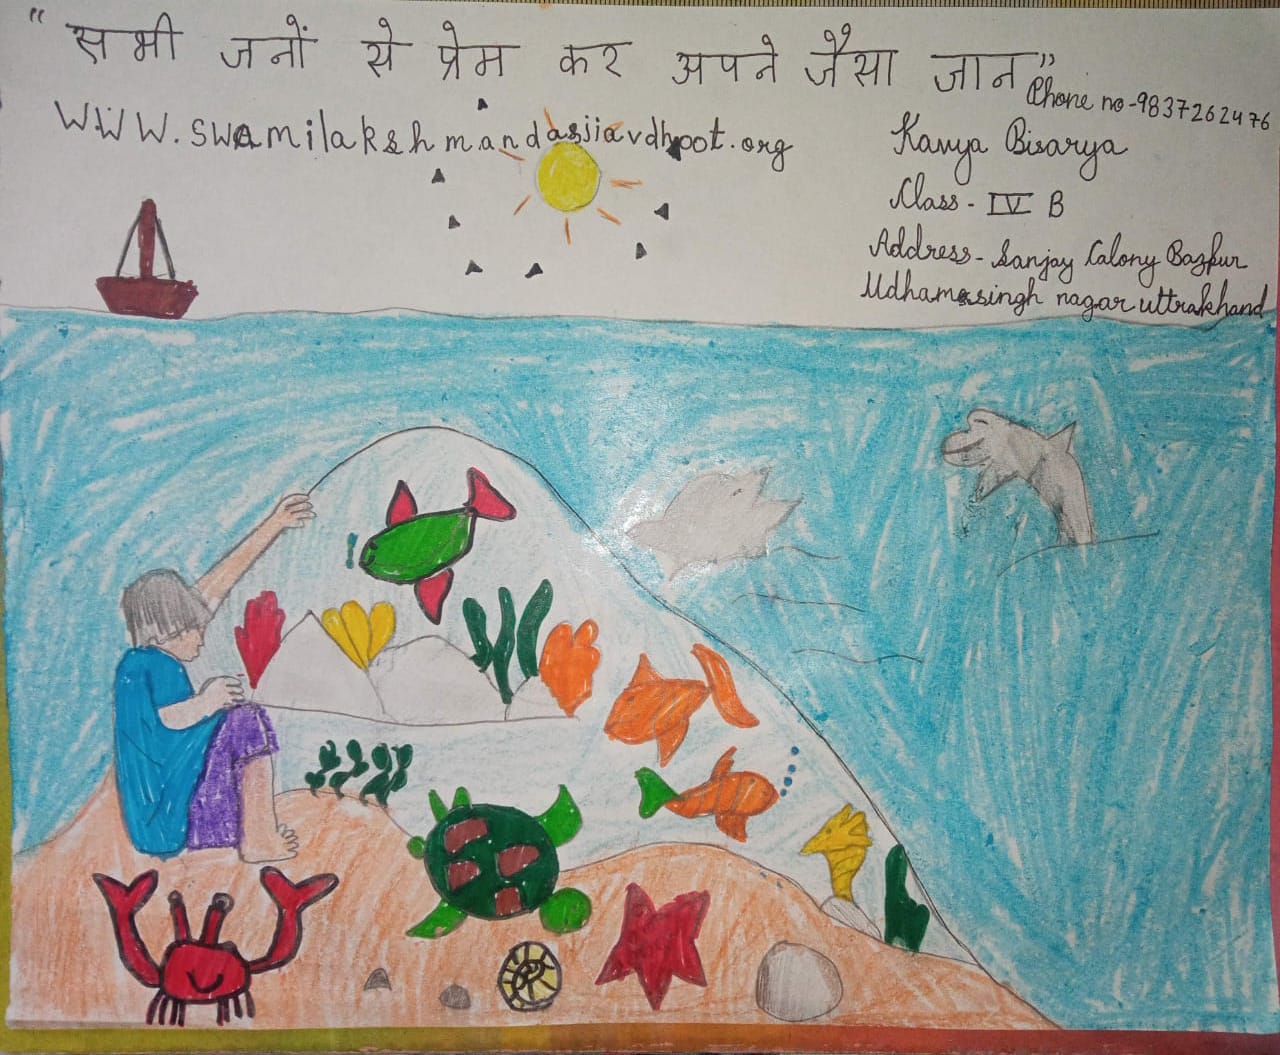 "सभी जनों से प्रेम कर अपने जैसा जान"
Phone no-9837262476
www.swamilakshmandasjiavdhoot.org
Kavya Bisarya
Class - IV B
Address - Sanjay Colony Bazpur
Udhamsingh nagar uttrakhand